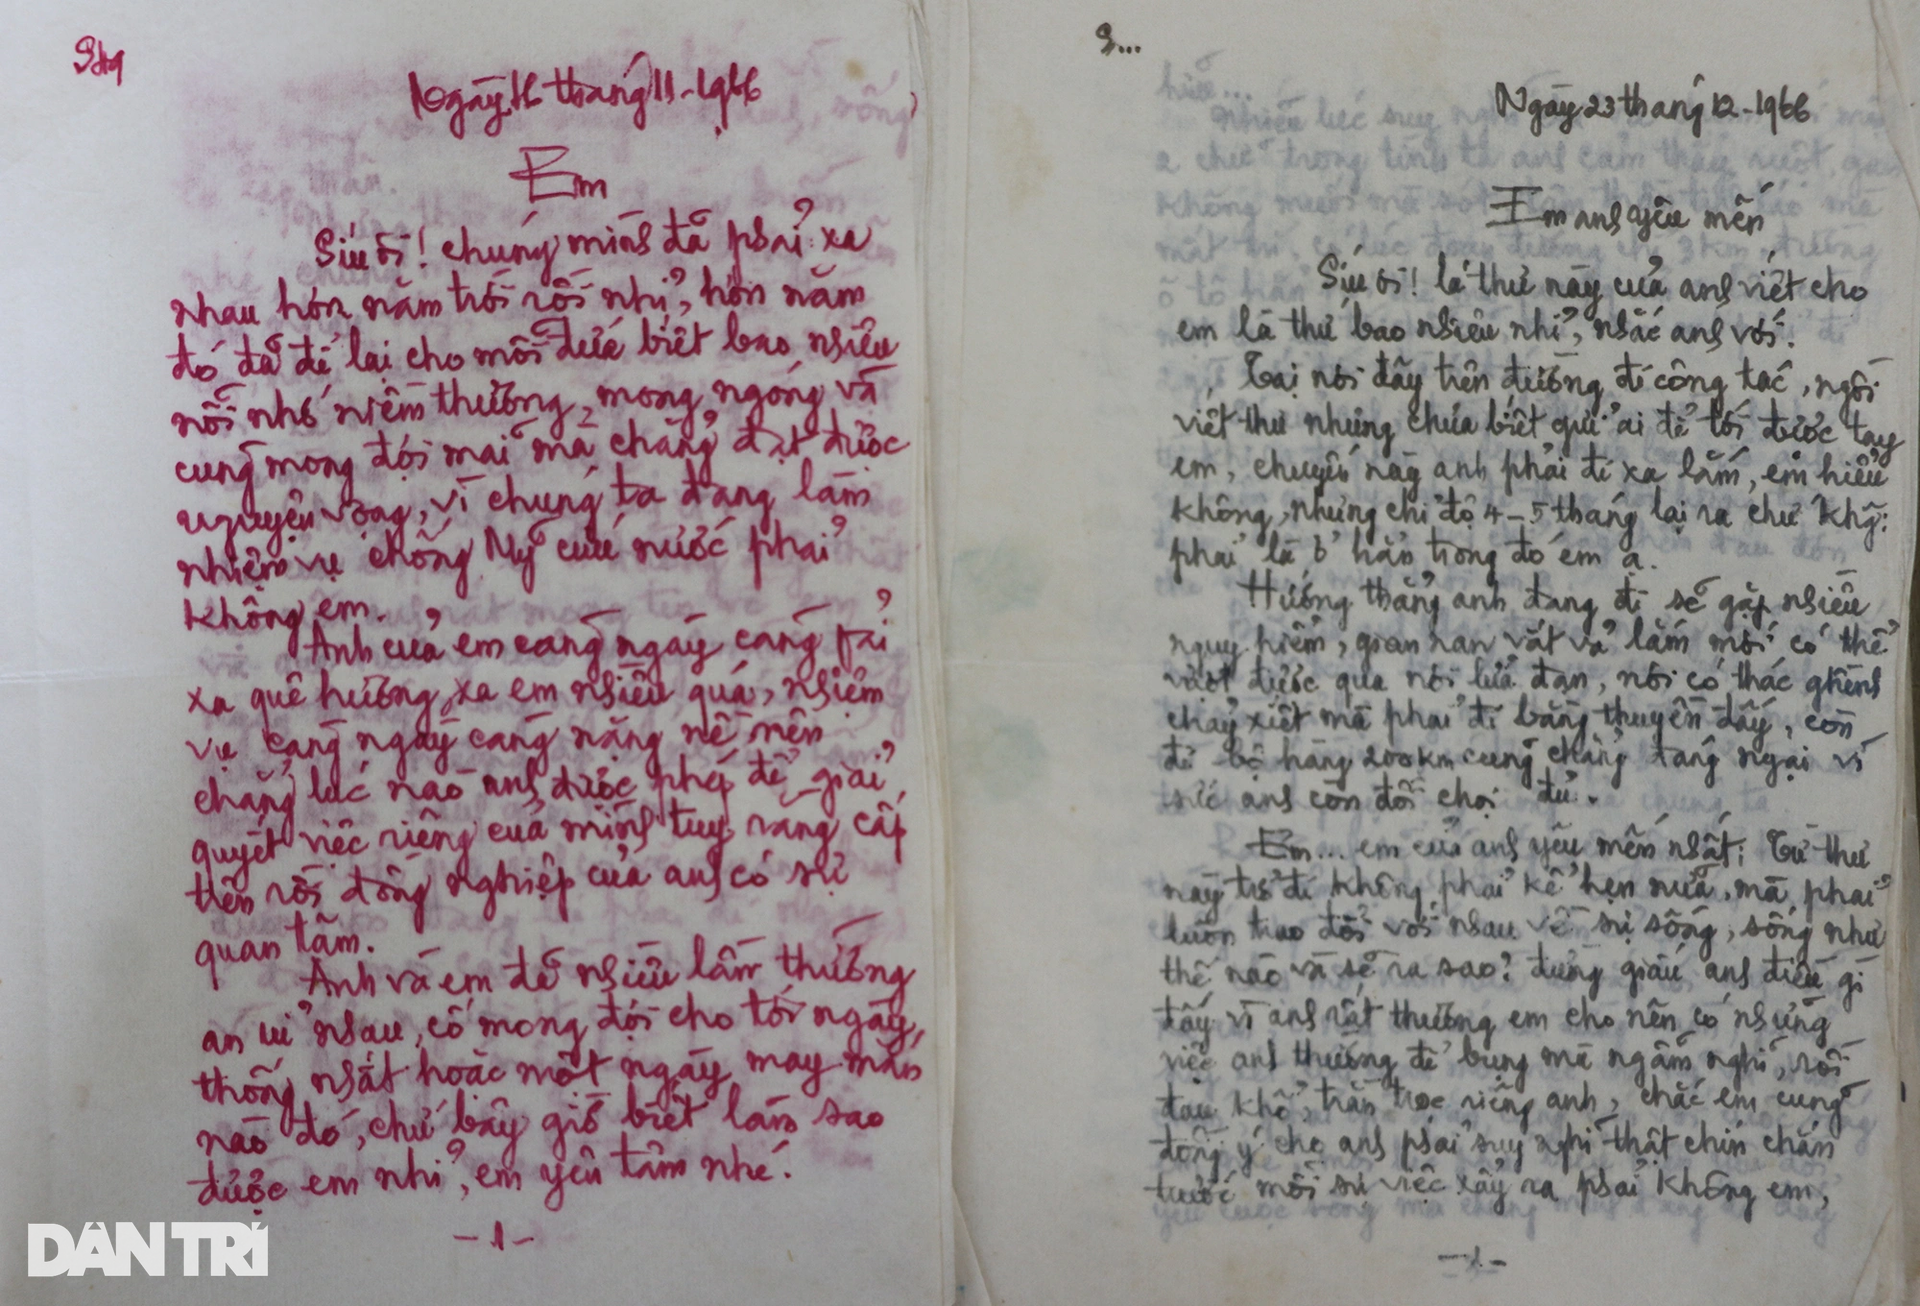 Ngày 16 tháng 11-1966
Em
Síu ơi! chúng mình đã phải xa
nhau hơn năm trời rồi nhỉ, hơn năm
đó đã để lại cho mỗi đứa biết bao nhiêu
nỗi nhớ niềm thương, mong ngóng và
cũng mong đợi mãi mà chẳng đạt được
nguyện vọng, vì chúng ta đang làm
nhiệm vụ chống Mỹ cứu nước phải
không em.
Anh của em càng ngày càng fải
xa quê hương, xa em nhiều quá, nhiệm
vụ càng ngày càng nặng nề nên
chẳng lúc nào anh được phép để giải
quyết việc riêng của mình tuy rằng cấp
trên rồi đồng nghiệp của anh có sự
quan tâm.
Anh và em đã nhiều lần thường
an ủi nhau, cố mong đợi cho tới ngày
thống nhất hoặc một ngày may mắn
nào đó, chứ bây giờ biết làm sao
được em nhỉ, em yên tâm nhé.
-1-
S...
Ngày 23 tháng 12-1966
Em anh yêu mến
Síu ơi! lá thư này của anh viết cho
em là thư bao nhiêu nhỉ, nhắc anh với.
Tại nơi đây trên đường đi công tác, ngồi
viết thư nhưng chưa biết gửi ai để tới được tay
em, chuyến này anh phải đi xa lắm, em hiểu
không, nhưng chỉ độ 4-5 tháng lại ra chứ khg:
phải là ở hẳn trong đó em ạ.
Hướng thẳng anh đang đi sẽ gặp nhiều
nguy hiểm, gian nan vất vả lắm mới có thể
vượt được qua nơi lửa đạn, nơi có thác ghềnh
chảy xiết mà phải đi bằng thuyền đấy, còn
đi bộ hàng 200km cũng chẳng đáng ngại vì
sức anh còn đối chọi đủ.
Em... em của anh yêu mến nhất: Từ thư
này trở đi không phải kể hẹn nữa, mà phải
luôn trao đổi với nhau về sự sống, sống như
thế nào và sẽ ra sao? đừng giấu anh điều gì
đấy vì anh rất thương em cho nên có những
việc anh thường để bụng mà ngẫm nghĩ, rồi
đau khổ, trằn trọc riêng anh, chắc em cũng
đồng ý cho anh phải suy nghĩ thật chín chắn
trước mỗi sự việc xảy ra phải không em,
-1-
DÂN TRÍ